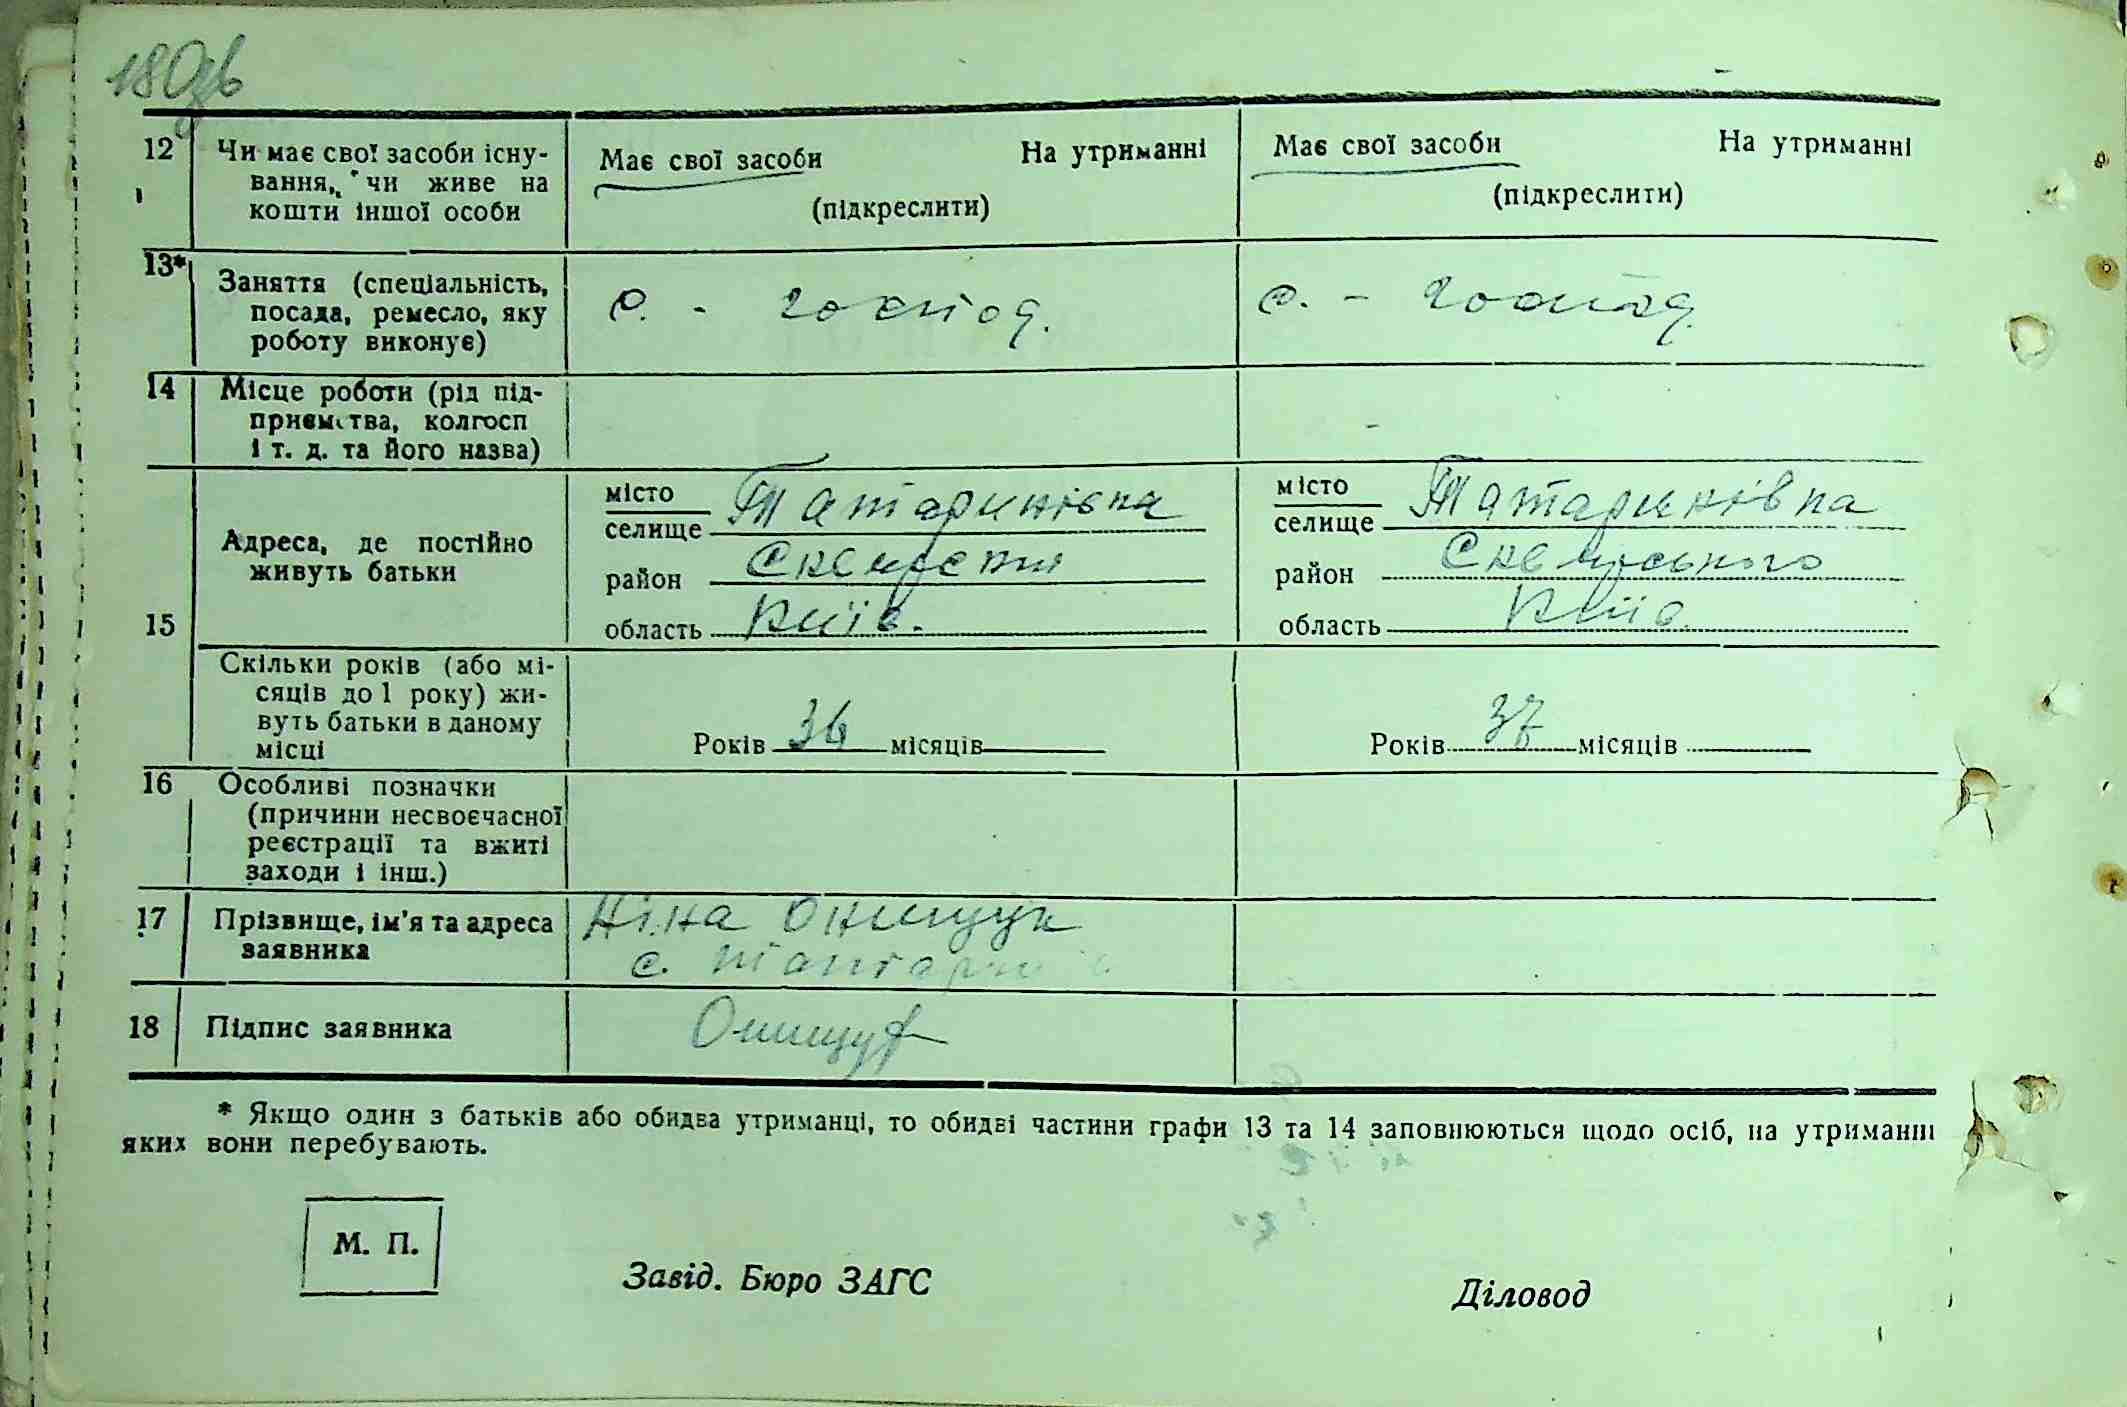 180зв
12 Чи має свої засоби існу-
вання, чи живе на
кошти іншої особи
Має свої засоби На утриманні
(підкреслити)
Має свої засоби На утриманні
(підкреслити)
13* Заняття (спеціальність,
посада, ремесло, яку
роботу виконує)
с. - господ.
с. - господ.
14 Місце роботи (рід під-
приємства, колгосп
і т. д. та його назва)
15 Адреса, де постійно
живуть батьки
місто
селище Татаринівка
район
область Київ.
місто
селище Татаринівка
район Сквирського
область Київ.
Скільки років (або мі-
сяців до 1 року) жи-
вуть батьки в даному
місці
Років 36 місяців
Років 37 місяців
16 Особливі позначки
(причини несвоєчасної
реєстрації та вжиті
заходи і інш.)
17 Прізвище, ім'я та адреса
заявника
Ніна Онищук
с.
18 Підпис заявника
Онищук
* Якщо один з батьків або обидва утриманці, то обидві частини графи 13 та 14 заповнюються щодо осіб, на утриманні
яких вони перебувають.
М. П.
Завід. Бюро ЗАГС
Діловод